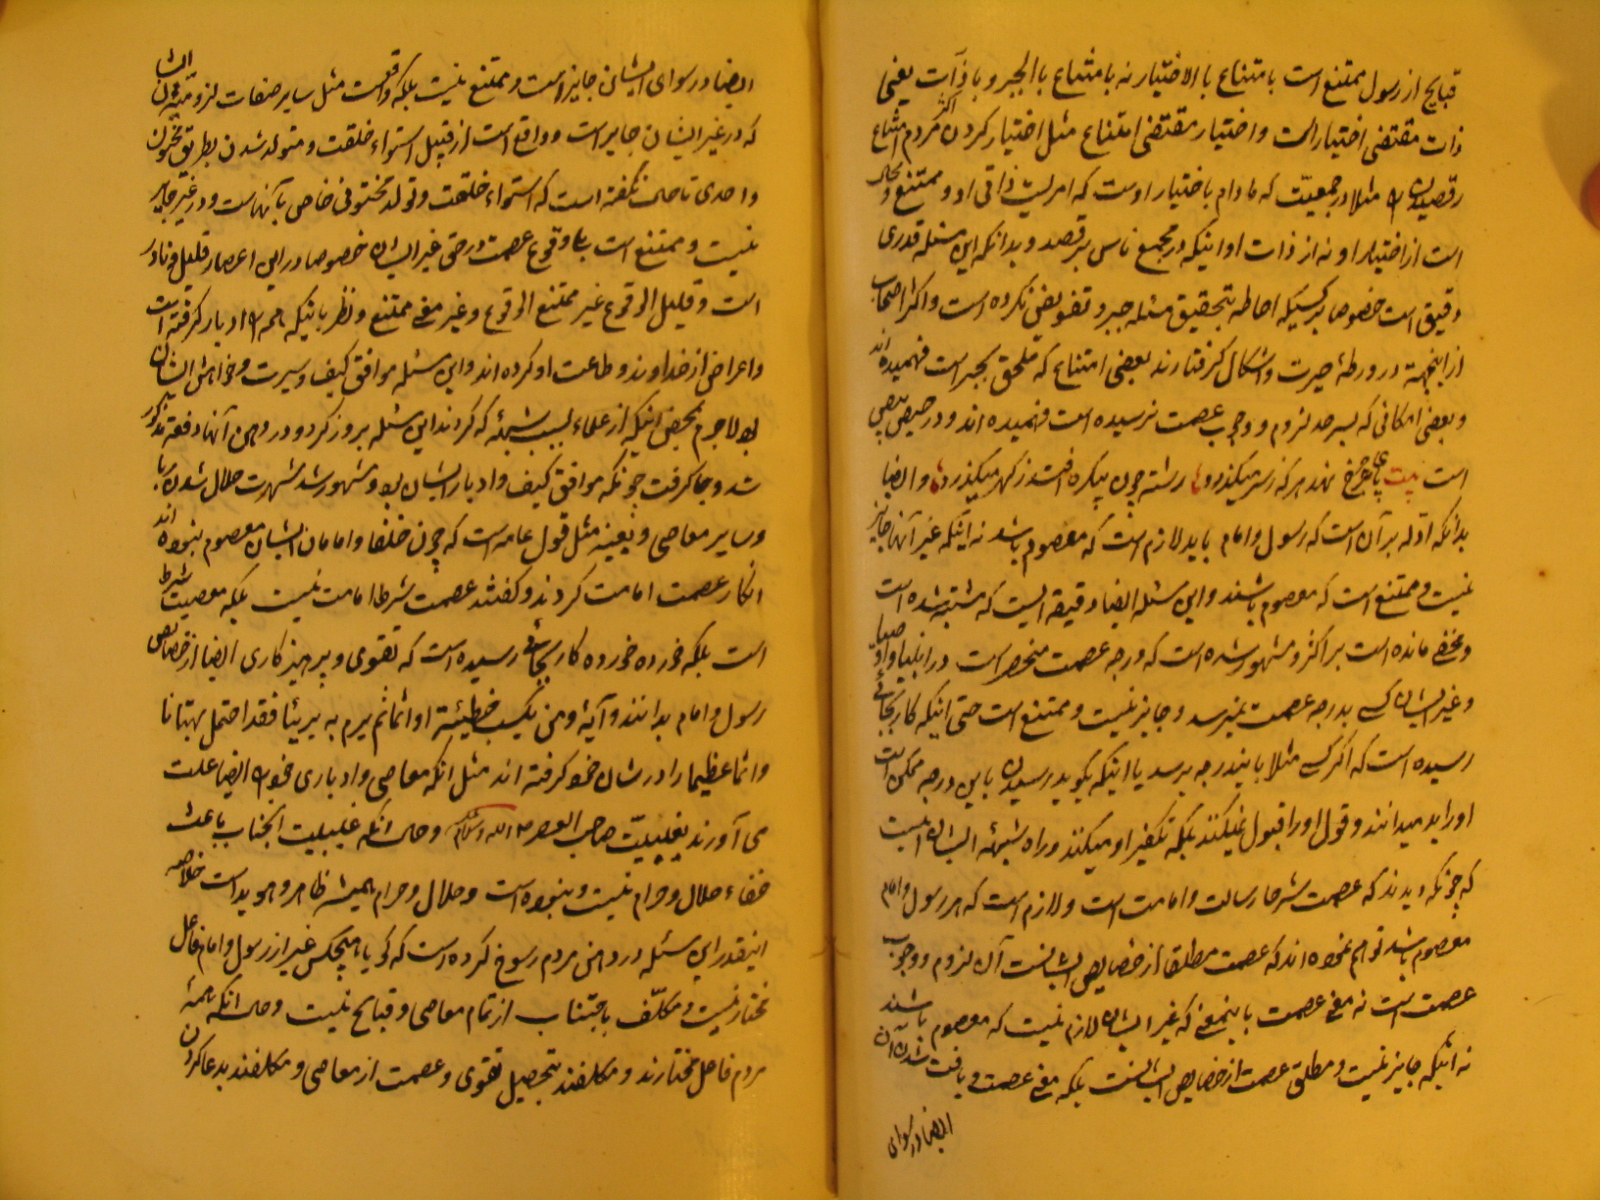 قبایح از رسول ممتنع است بامتناع بالاختیار نه بامتناع باالجبر و باذات یعنی
ذات مقتضی اختیار است و اختیار مقتضی امتناع مثل اختیار کردن اکثر مردم امتناع
رقصیدن را مثلا در جمعیّت که مادام باختیار اوست که امریست ذاتی او و ممتنع و محال
است از اختیار او نه از ذات او اینکه در مجمع ناس برقصد و بدانکه این مسئله قدری
دقیق است خصوصا بر کسیکه احاطه بتحقیق مسئله جبر و تفویض نکرده است و اکثر اصحاب
از اینجهة در ورطهٔ حیرت و اشکال گرفتارند بعضی امتناع که ملحق بجبر است فهمیده اند
و بعضی امکانی که بسر حد لزوم و وجوب عصمت نرسیده است فهمیده اند و در حیص بیص
است بیت چرخ نهند هر که ز سر میگذرد رشته چون پیکره افتد ز گهر میگذرد و ایضا
بدانکه ادّله بر آن است که رسول و امام باید لازم است که معصوم باشد نه اینکه غیر آنها جایز
نیست و ممتنع است که معصوم باشند و این مسئله ایضا دقیقه ایست که مشتبه شده است
و مخفی مانده است بر اکثر و مشهور شده است که درجه عصمت منحصر است در انبیا و اوصیا
و غیر ایشان کسی بدرجه عصمت نمیرسد و جایز نیست و ممتنع است حتی اینکه کار بجائی
رسیده است که اگر کسی مثلا باین درجه برسد یا اینکه بگوید رسیدن باین درجه ممکن است
او را بد میدانند و قول او را قبول نمیکنند بلکه تکفیر او میکنند و راه شبهه ایشان اینست
که چونکه دیدند که عصمت شرط رسالت و امامت است و لازم است که هر رسول و امام
معصوم باشد توهم نموده اند که عصمت مطلقا از خصایص ایشانست آن لزوم و وجوب
عصمت است نه معنی عصمت باینمعنی که غیر ایشان لازم نیست که معصوم باشند
نه اینکه جایز نیست و مطلق عصمت از خصایص ایشانست بلکه معنی عصمت و یافت شدن آن
ایضا در سوای
ایضا در سوای ایشان جایز است و ممتنع نیست بلکه واقعست مثل سایر صفات لزومیّه ایشان
که در غیر ایشان جایز است و واقع است از قبیل استواء خلقت و متولد شدن بطریق مختون
واحدی تا حال نگفته است که استواء خلقت و تولد مختونی خاص بآنهاست و در غیر جایز
نیست و ممتنع است بلی وقوع عصمت در حق غیر ایشان خصوصا در این اعصار قلیل و نادر
است و قلیل الوقوع غیر ممتنع الوقوع و غیر معنی ممتنع و نظر باینکه ادبار گرفته است
و اعراض از خداوند و طاعت او کرده اند و این مسئله موافق کیف و سیرت و خواهش ایشان
بود لاجرم بمحض اینکه از علماء بسبب شبهه که کردند این مسئله بروز کرد و در ذهن آنها دفعة مذکور
شد و جا گرفت چونکه موافق کیف و ادبار ایشان بود مشهور شد شهرت حلال شدن ربا
و سایر معاصی و بعینه مثل قول عامه است که چون خلفا و امامان ایشان معصوم نبوده اند
انکار عصمت امامت کردند و گفتند عصمت شرط امامت نیست بلکه معصیت شرط
است بلکه خورده خورده کار بجائی رسیده است که تقوی و پرهیزکاری ایضا از خصایص
رسول و امام بدانند و آیهٔ و من یکسب خطیئة او اثما ثم یرم به بریئا فقد احتمل بهتانا
و اثما عظیما را در شان خود گرفته اند مثل انکه معاصی و ادباری خود را ایضا علت
می آورند بغیبیّت صاحب العصر و حال انکه غیبیت انجناب باعث
خفاء حلال و حرام نیست و نبوده است و حلال و حرام همیشه ظاهر و هویداست خلاصه
اینقدر این مسئله در ذهن مردم رسوخ کرده است که گویا هیچکس غیر از رسول و امام فاعل
مختار نیست و مکلّف باجتناب از تمام معاصی و قبایح نیست و حال انکه همهٔ
مردم فاعل مختارند و مکلفند بتحصیل تقوی و عصمت از معاصی و مکلفند بدعا کردن